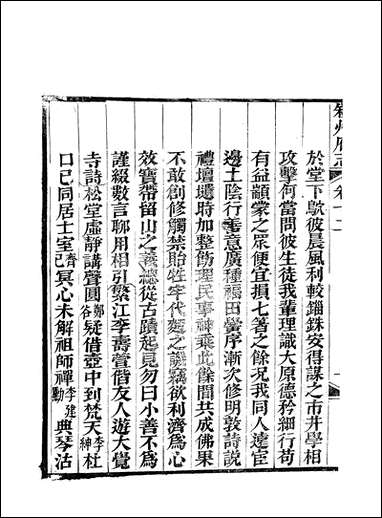 叙州府志 卷十二
於堂下歇彼晨風利較錙銖安得謀之市井學相
攻擊何當問彼生徒我輩理識大原德矜細行苟
有益顓蒙之眾便宜損七箸之餘况我同人遠宦
邊土陰行善意廣種福田營序漸次修明敦詩說
禮壇壝時加整飭理民事神乘此餘閒共成佛果
不敢創修觸禁貽牲牢代麵之譏竊欲利濟為心
效寶帶留山之義總從古蹟起見勿曰小善不為
謹綴數言聊用相引繁江李壽萱偕友人遊大覺
寺詩松堂虛靜講聲圓鄭谷疑借壺中到梵天李紳杜
口已同居士室齊己冥心未解祖師禪李建勳典琴沽